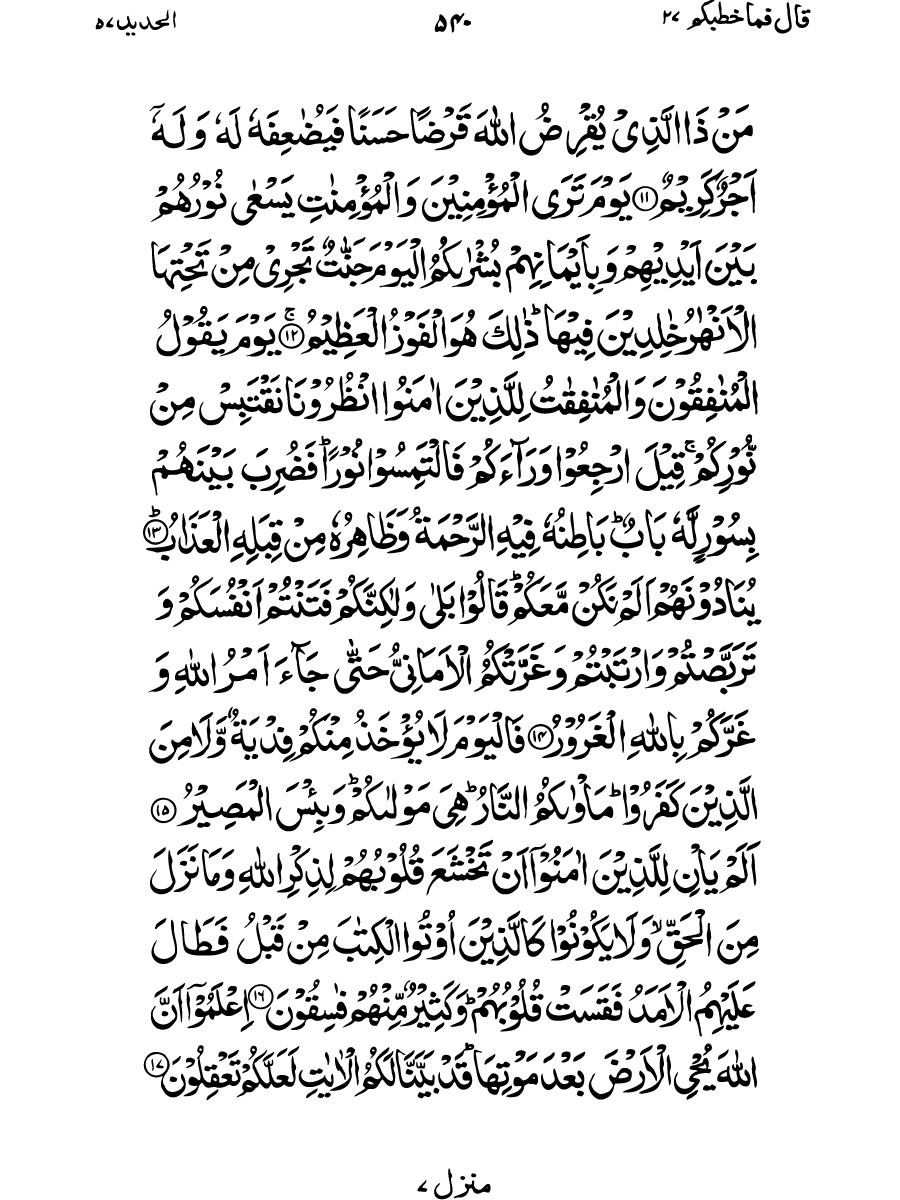 قال فما خطبكم ٢٧ ۵۴۰ الحديد ٥٧
مَنْ ذَا الَّذِیْ یُقْرِضُ اللّٰهَ قَرْضًا حَسَنًا فَیُضٰعِفَهٗ لَهٗ وَ لَهٗۤ
اَجْرٌ كَرِیْمٌ ﴿۱۱﴾ یَوْمَ تَرَی الْمُؤْمِنِیْنَ وَ الْمُؤْمِنٰتِ یَسْعٰی نُوْرُهُمْ
بَیْنَ اَیْدِیْهِمْ وَ بِاَیْمَانِهِمْ بُشْرٰىكُمُ الْیَوْمَ جَنّٰتٌ تَجْرِیْ مِنْ تَحْتِهَا
الْاَنْهٰرُ خٰلِدِیْنَ فِیْهَا ؕ ذٰلِكَ هُوَ الْفَوْزُ الْعَظِیْمُ ﴿ۚ۱۲﴾ یَوْمَ یَقُوْلُ
الْمُنٰفِقُوْنَ وَ الْمُنٰفِقٰتُ لِلَّذِیْنَ اٰمَنُوا انْظُرُوْنَا نَقْتَبِسْ مِنْ
نُّوْرِكُمْ ۚ قِیْلَ ارْجِعُوْا وَرَآءَكُمْ فَالْتَمِسُوْا نُوْرًا ؕ فَضُرِبَ بَیْنَهُمْ
بِسُوْرٍ لَّهٗ بَابٌ ؕ بَاطِنُهٗ فِیْهِ الرَّحْمَةُ وَ ظَاهِرُهٗ مِنْ قِبَلِهِ الْعَذَابُ ﴿ؕ۱۳﴾
یُنَادُوْنَهُمْ اَلَمْ نَكُنْ مَّعَكُمْ ؕ قَالُوْا بَلٰی وَ لٰكِنَّكُمْ فَتَنْتُمْ اَنْفُسَكُمْ وَ
تَرَبَّصْتُمْ وَ ارْتَبْتُمْ وَ غَرَّتْكُمُ الْاَمَانِیُّ حَتّٰی جَآءَ اَمْرُ اللّٰهِ وَ
غَرَّكُمْ بِاللّٰهِ الْغَرُوْرُ ﴿۱۴﴾ فَالْیَوْمَ لَا یُؤْخَذُ مِنْكُمْ فِدْیَةٌ وَّ لَا مِنَ
الَّذِیْنَ كَفَرُوْا ؕ مَاْوٰىكُمُ النَّارُ ؕ هِیَ مَوْلٰىكُمْ ؕ وَ بِئْسَ الْمَصِیْرُ ﴿۱۵﴾
اَلَمْ یَاْنِ لِلَّذِیْنَ اٰمَنُوْۤا اَنْ تَخْشَعَ قُلُوْبُهُمْ لِذِكْرِ اللّٰهِ وَ مَا نَزَلَ
مِنَ الْحَقِّ ۙ وَ لَا یَكُوْنُوْا كَالَّذِیْنَ اُوْتُوا الْكِتٰبَ مِنْ قَبْلُ فَطَالَ
عَلَیْهِمُ الْاَمَدُ فَقَسَتْ قُلُوْبُهُمْ ؕ وَ كَثِیْرٌ مِّنْهُمْ فٰسِقُوْنَ ﴿۱۶﴾ اِعْلَمُوْۤا اَنَّ
اللّٰهَ یُحْیِ الْاَرْضَ بَعْدَ مَوْتِهَا ؕ قَدْ بَیَّنَّا لَكُمُ الْاٰیٰتِ لَعَلَّكُمْ تَعْقِلُوْنَ ﴿۱۷﴾
منزل ٧